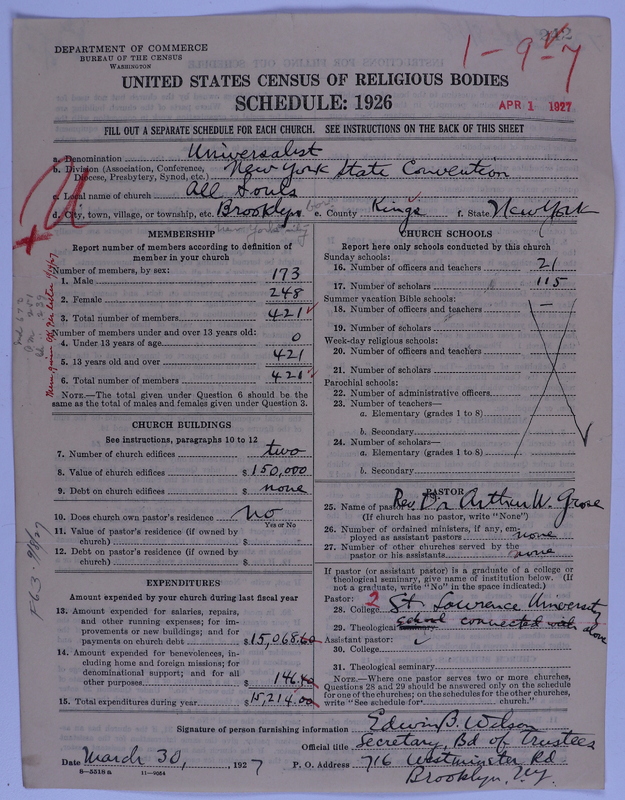 242
1-9-7
DEPARTMENT OF COMMERCE
BUREAU OF THE CENSUS
WASHINGTON
UNITED STATES CENSUS OF RELIGIOUS BODIES
SCHEDULE: 1926
APR 1 1927
FILL OUT A SEPARATE SCHEDULE FOR EACH CHURCH. SEE INSTRUCTIONS ON THE BACK OF THIS SHEET
a. Denomination Universalist
b. Division (Association, Conference, Diocese, Presbytery, Synod, etc.) New York State Convention
c. Local name of church All Souls
d. City, town, village, or township, etc. Brooklyn e. County Kings f. State New York
New York City
MEMBERSHIP
Report number of members according to definition of
member in your church
Number of members, by sex:
1. Male 173
2. Female 248
3. Total number of members 421
Number of members under and over 13 years old:
4. Under 13 years of age 0
5. 13 years old and over 421
6. Total number of members 421
NOTE.—The total given under Question 6 should be
same as the total of males and females given under Question 3.
CHURCH BUILDINGS
See instructions, paragraphs 10 to 12
7. Number of church edifices two
8. Value of church edifices $150,000
9. Debt on church edifices $ none
10. Does church own pastor's residence No
Yes or No
11. Value of pastor's residence (if owned by
church) $
12. Debt on pastor's residence (if owned by
church) $
EXPENDITURES
Amount expended by your church during last fiscal year
13. Amount expended for salaries, repairs,
and other running expenses; for im-
provements or new buildings; and for
payments on church debt $15,068.60
14. Amount expended for benevolences, in-
cluding home and foreign missions; for
denominational support; and for all
other purposes 146.40
15. Total expenditures during year $15,214.00
CHURCH SCHOOLS
Report here only schools conducted by this church
Sunday schools:
16. Number of officers and teachers 21
17. Number of scholars 115
Summer vacation Bible schools:
18. Number of officers and teachers —
19. Number of scholars
Week-day religious schools:
20. Number of officers and teachers
21. Number of scholars
Parochial schools:
22. Number of administrative officers
23. Number of teachers—
a. Elementary (grades 1 to 8)
b. Secondary
24. Number of scholars—
a. Elementary (grades 1 to 8)
b. Secondary
PASTOR
25. Name of pastor Rev. Dr. Arthur W. Grose
(If church has no pastor, write "None")
26. Number of ordained ministers, if any, em-
ployed as assistant pastors none
27. Number of other churches served by the
pastor or his assistants none
If pastor (or assistant pastor) is a graduate of a college or
theological seminary, give name of institution below. (If
not a graduate, write "No" in the space indicated.)
Pastor:
28. College 2 St Lawrance University
29. Theological seminary school connected with above
Assistant pastor:
30. College
31. Theological seminary
NOTE.—Where one pastor serves two or more churches,
Questions 28 and 29 should be answered only on the schedule
for one of the churches; on the schedules for the other churches,
write "See schedule for church."
Signature of person furnishing information Edwin B. Wilson
Official title Secretary, Bd of Trustees
Date March 30, 1927 P. O. Address 716 Westminster Rd
8—5518 a 11—9064 Brooklyn, N.Y.